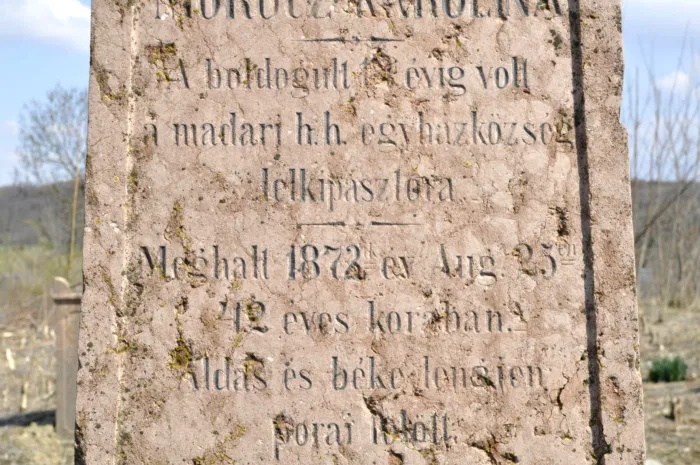 MÓROCZ KAROLINA
A boldogult 12 évig volt
a madari h.h. egyházközség
lelkipásztora
Meghalt 1872ik év Aug. 25én
42 éves korában.
Áldás és béke lengjen
porai fölött.